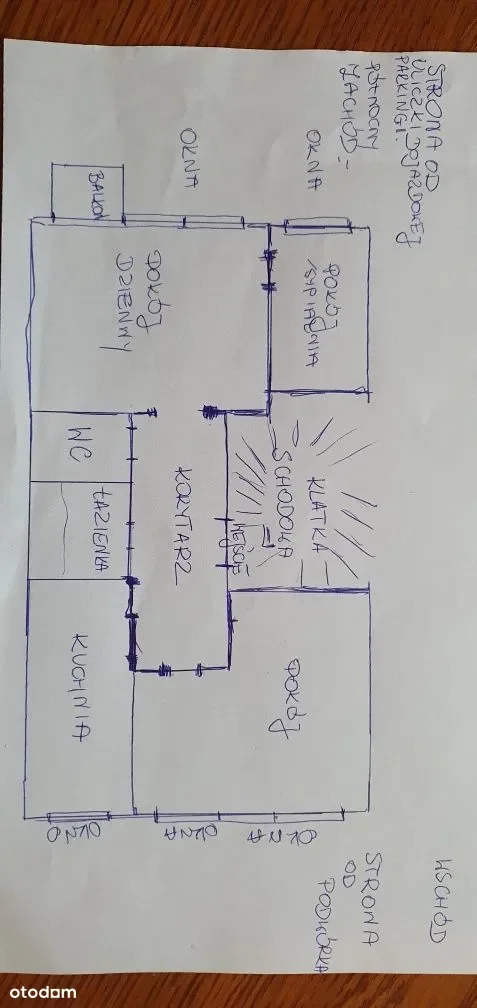 STRONA OD
ULICZKI DOJAZDOWEJ
PARKINGI.
ZACHÓD:-
OKNA
OKNA
BALKON
POKÓJ
SYPIALNIA
POKÓJ
DZIENNY
KLATKA
SCHODOWA
WEJŚCIE
KORYTARZ
WC
ŁAZIENKA
POKÓJ
KUCHNIA
OKNA
OKNA
OKNO
WSCHÓD
STRONA
OD
PODWÓRKA
otodom